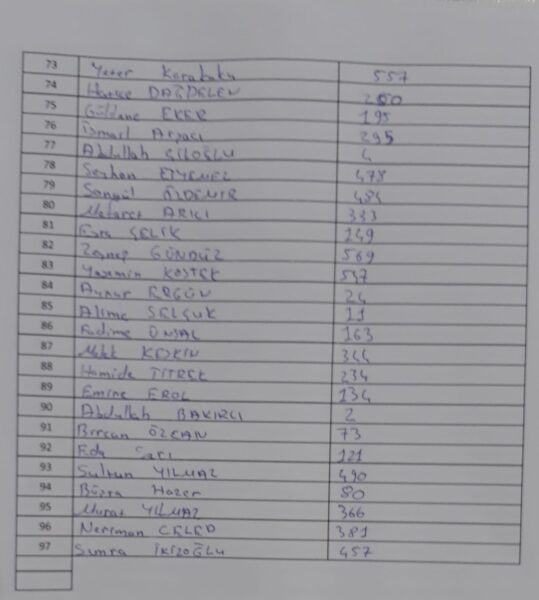 73 Yeter Karakaku 557
74 Hatice DAĞDELEN 200
75 Güldane EKER 195
76 İsmail Arpacı 295
77 Abdullah ÇİLOĞLU 4
78 Seyhan ETYEMEZ 478
79 Songül ÖZDEMİR 484
80 ARIKI 333
81 Esra ÇELİK 149
82 Zeynep GÜNDÜZ 569
83 Yasemin KÖSTEK 537
84 Aynur ERGÜN 24
85 Alime SELÇUK 11
86 Fadime ÜNSAL 163
87 Melek KESKİN 344
88 Hamide TİTREK 234
89 Emine EROL 134
90 Abdullah BAKIRCI 2
91 Bircan ÖZCAN 73
92 Eda Sarı 121
93 Sultan YILMAZ 490
94 Büşra Hazer 80
95 Murat YILMAZ 366
96 Neriman CELEP 381
97 Sümra İKİZOĞLU 457